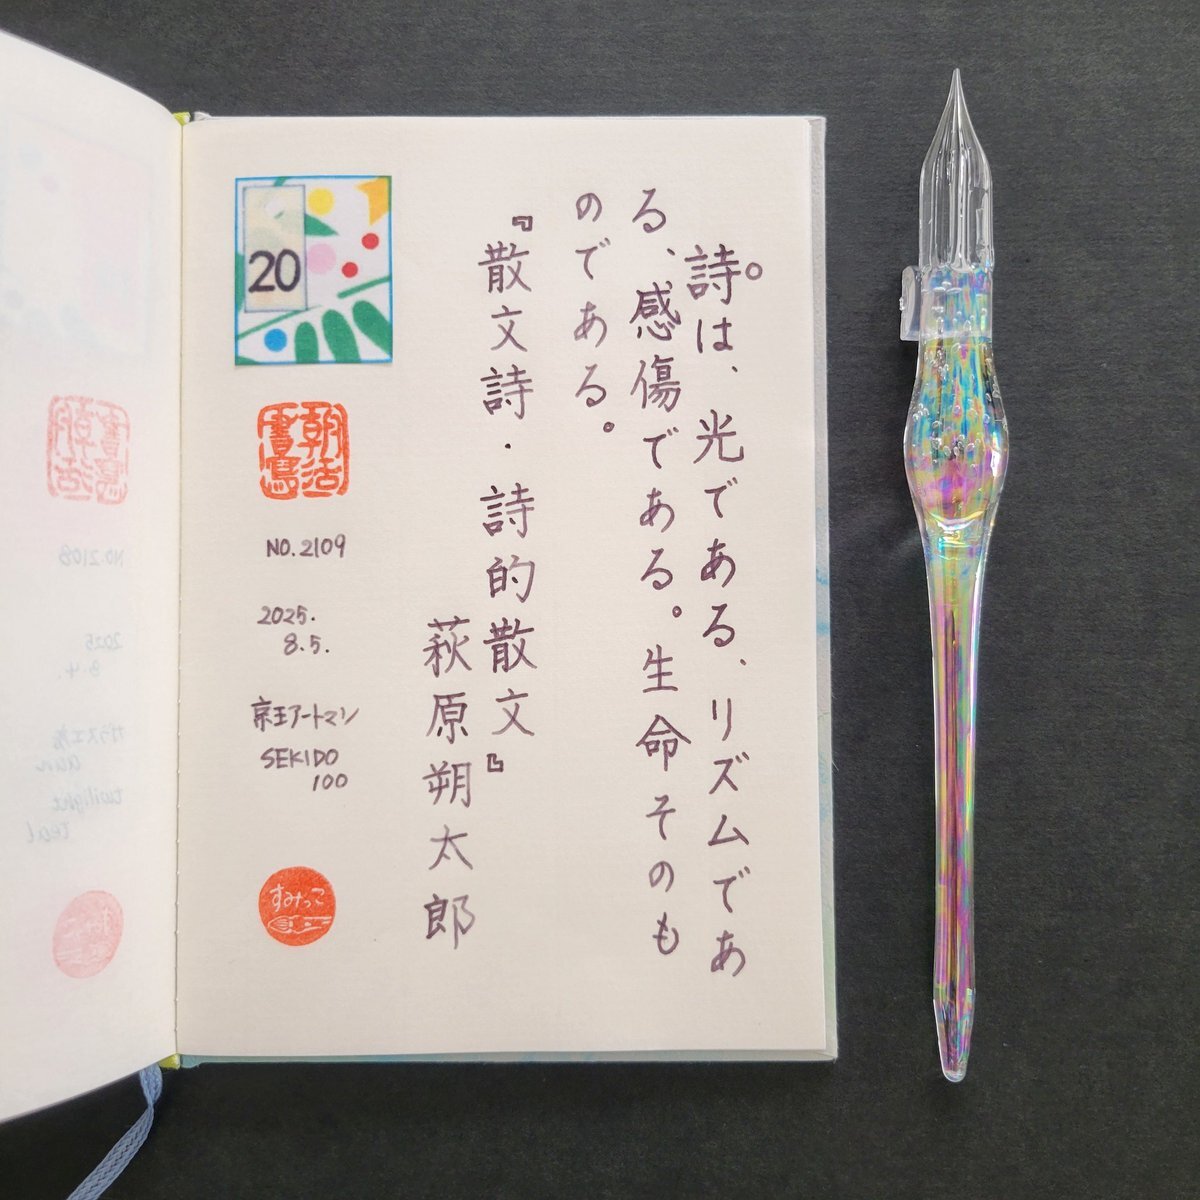 詩は、光である、リズムであ
る、感傷である。生命そのも
のである。
『散文詩・詩的散文』
萩原朔太郎
20
朝活
書寫
NO.2109
2025.
8.5.
京王アートマン
SEKIDO
100
すみっこ